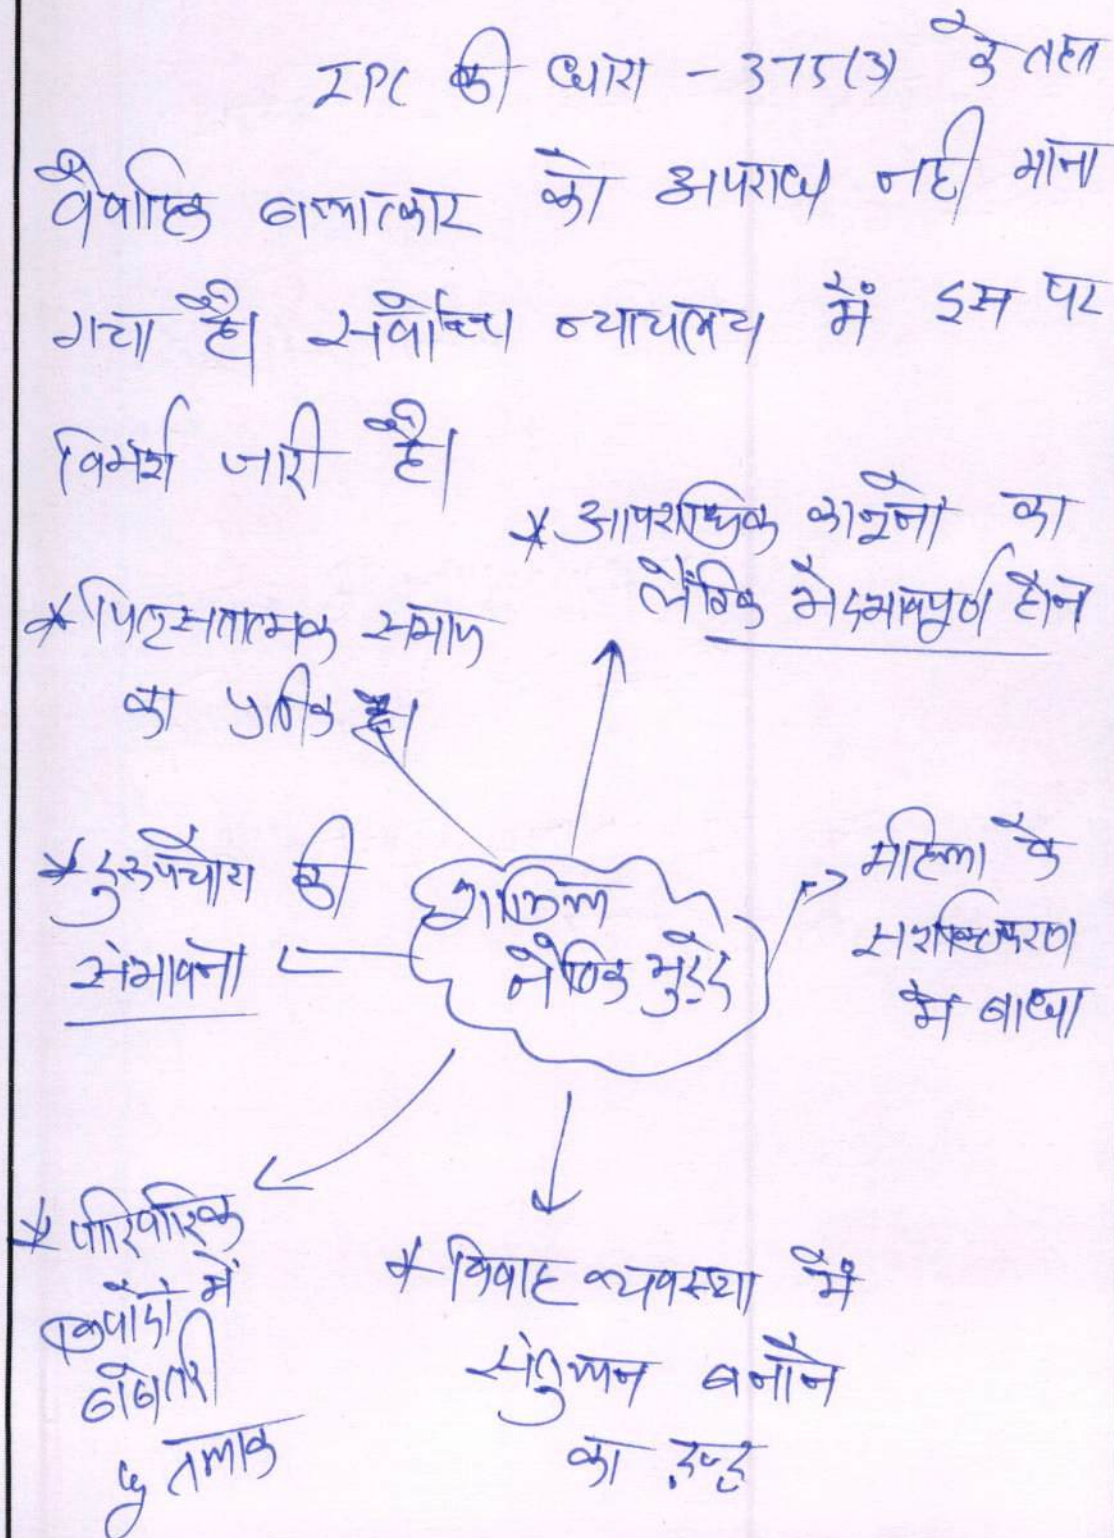 IPC की धारा - 375(3) के तहत
वैवाहिक बलात्कार को अपराध नही माना
गया है। सर्वोच्च न्यायलय में इस पर
विमर्श जारी है।
* आपराधिक कानूनो का
लैंगिक भेदभावपूर्ण होन
* पितृसतात्मक समाज
का प्रतीक है।
* दुरूपयोग की
संभावना
शामिल
नैतिक मुद्दे
महिला के
सशक्तिकरण
में बाधा
* पारिवारिक
विवादो में
बढोतरी
तलाक
* विवाह व्यवस्था में
संतुलन बनाने
का द्वन्द्व